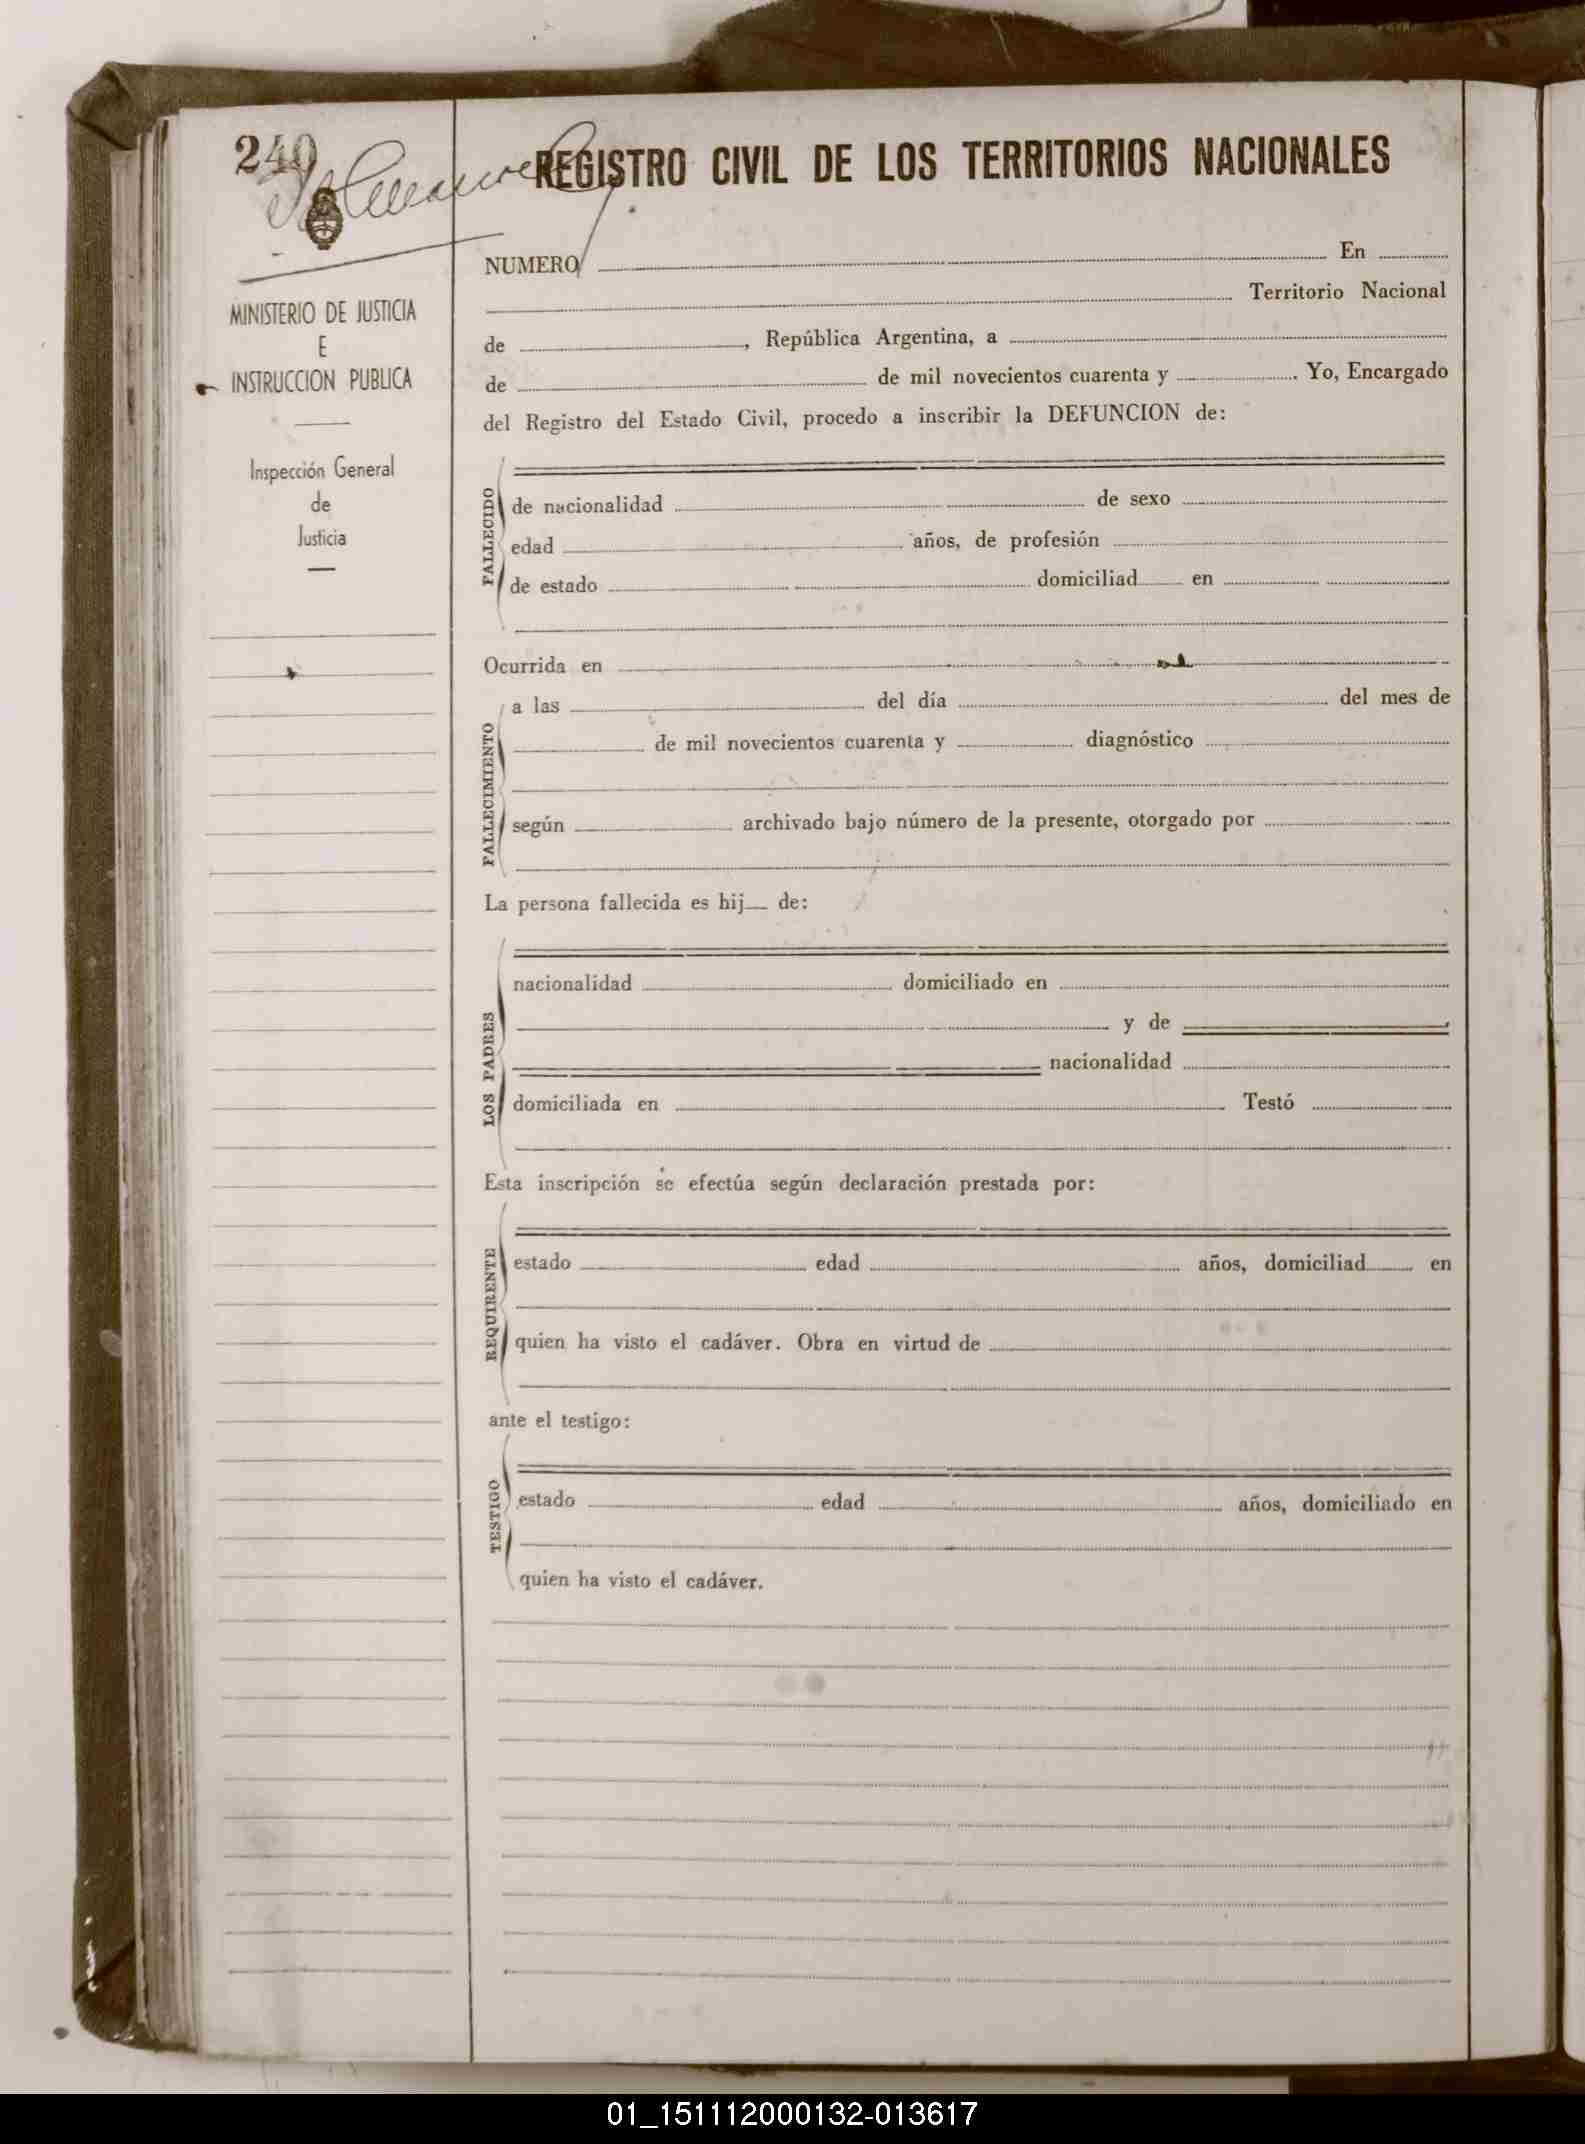 240
REGISTRO CIVIL DE LOS TERRITORIOS NACIONALES
MINISTERIO DE JUSTICIA
E
INSTRUCCION PUBLICA
Inspección General
de
Justicia
NUMERO En
Territorio Nacional
de , República Argentina, a
de de mil novecientos cuarenta y Yo, Encargado
del Registro del Estado Civil, procedo a inscribir la DEFUNCION de:
FALLECIDO
de nacionalidad de sexo
edad años, de profesión
de estado domiciliad en
Ocurrida en
FALLECIMIENTO
a las del día del mes de
de mil novecientos cuarenta y diagnóstico
según archivado bajo número de la presente, otorgado por
La persona fallecida es hij de:
LOS PADRES
nacionalidad domiciliado en
y de
nacionalidad
domiciliada en Testó
Esta inscripción se efectúa según declaración prestada por:
REQUIRENTE
estado edad años, domiciliad en
quien ha visto el cadáver. Obra en virtud de
ante el testigo:
TESTIGO
estado edad años, domiciliado en
quien ha visto el cadáver.
01_151112000132-013617